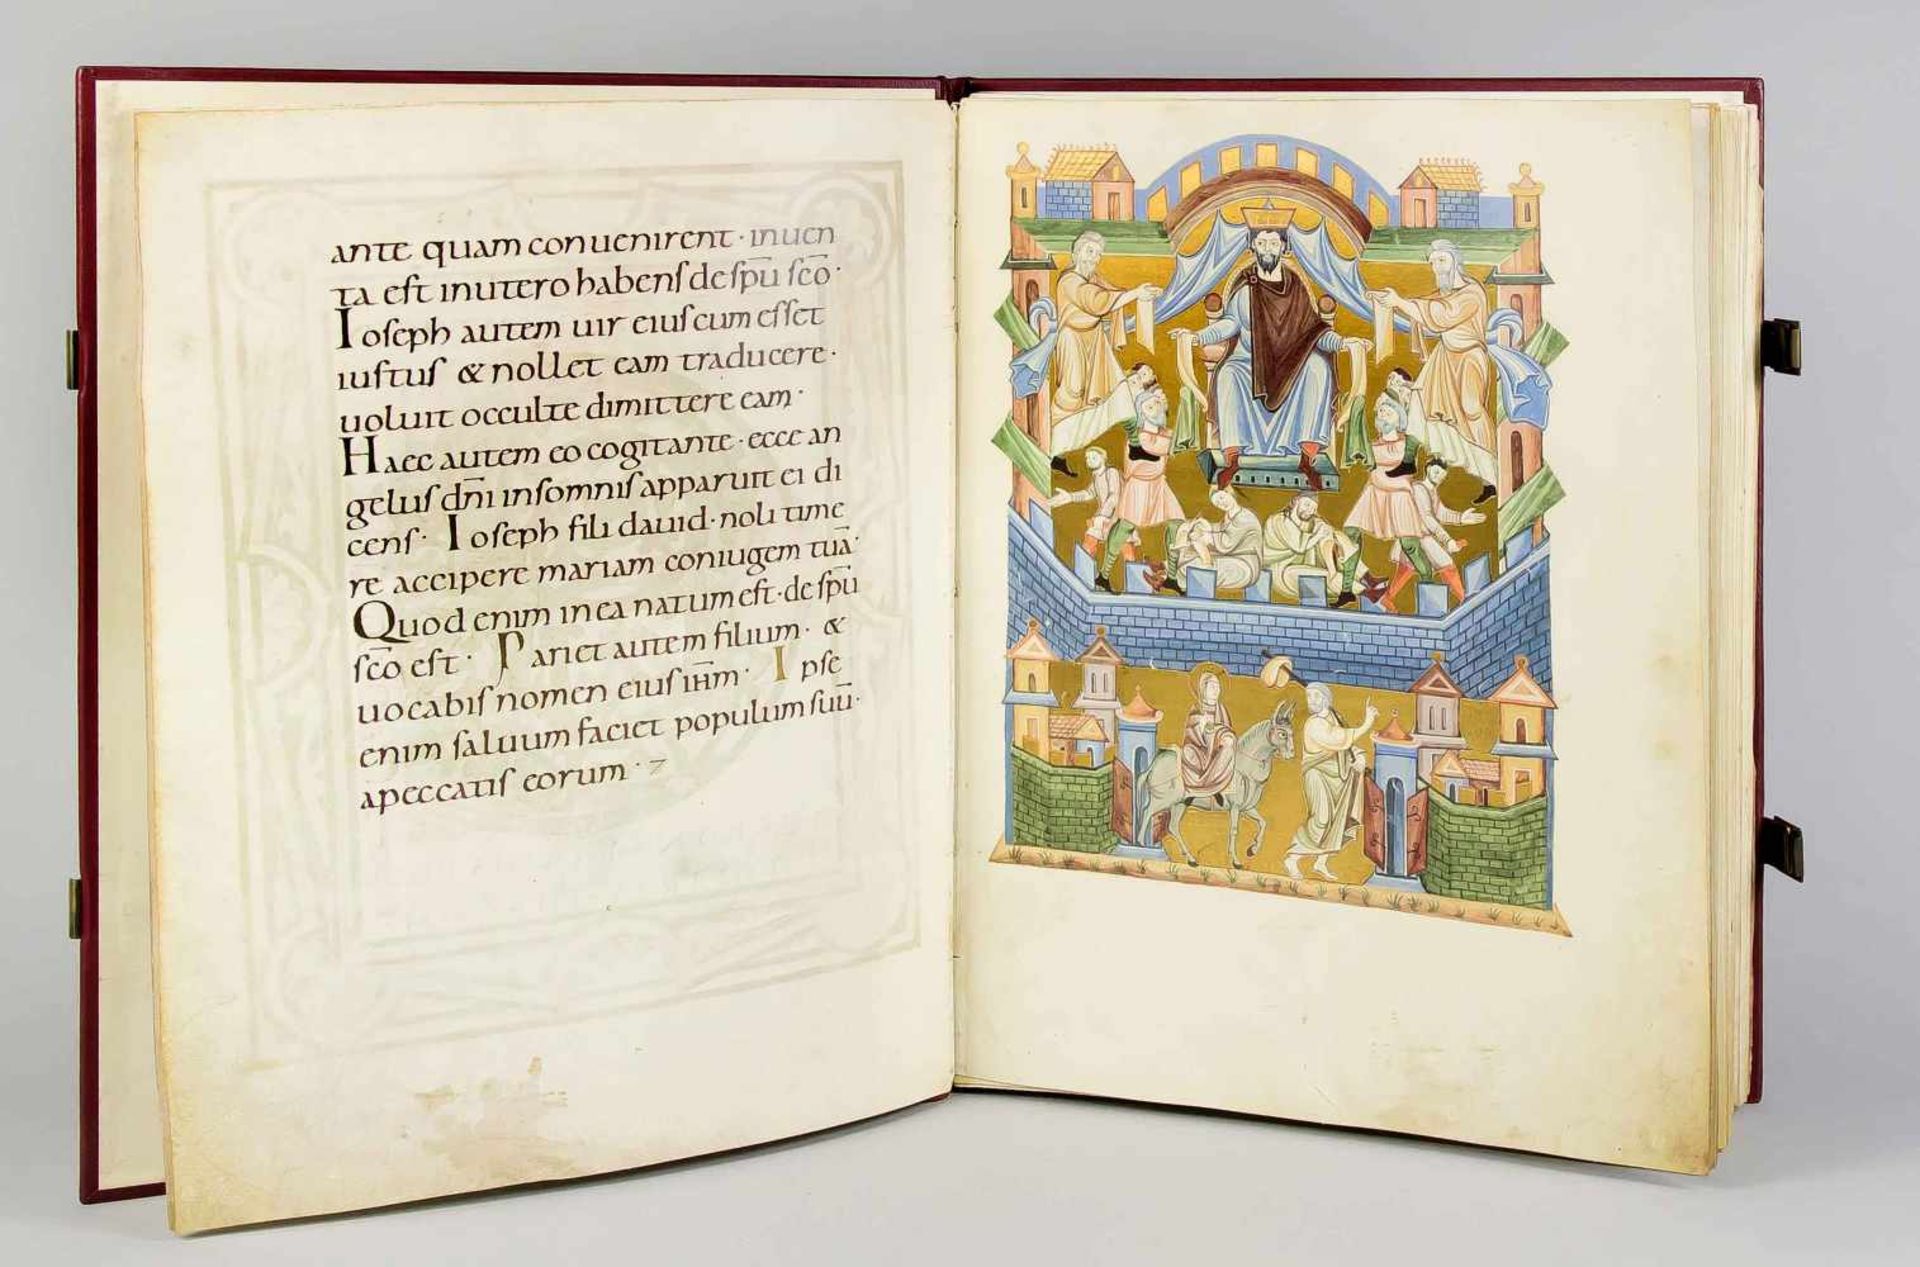 ante quam conuenirent · inuen
ta eſt inutero habenſ de ſpū ſc̄o ·
Ioſeph autem uir eiuſ cum eſſet
iuſtuſ & nollet eam traducere ·
uoluit occulte dimittere eam ·
Haec autem eo cogitante · ecce an
geluſ dn̄i inſomniſ apparuit ei di
cenſ · Ioſeph fili dauid · noli time
re accipere mariam coniugem tuā ·
Quod enim in ea natum eſt · de ſpū
ſc̄o eſt · Pariet autem filium · &
uocabiſ nomen eiuſ ih̄m · Ipſe
enim ſaluum faciet populum ſuū ·
apeccatiſ eorum · 7